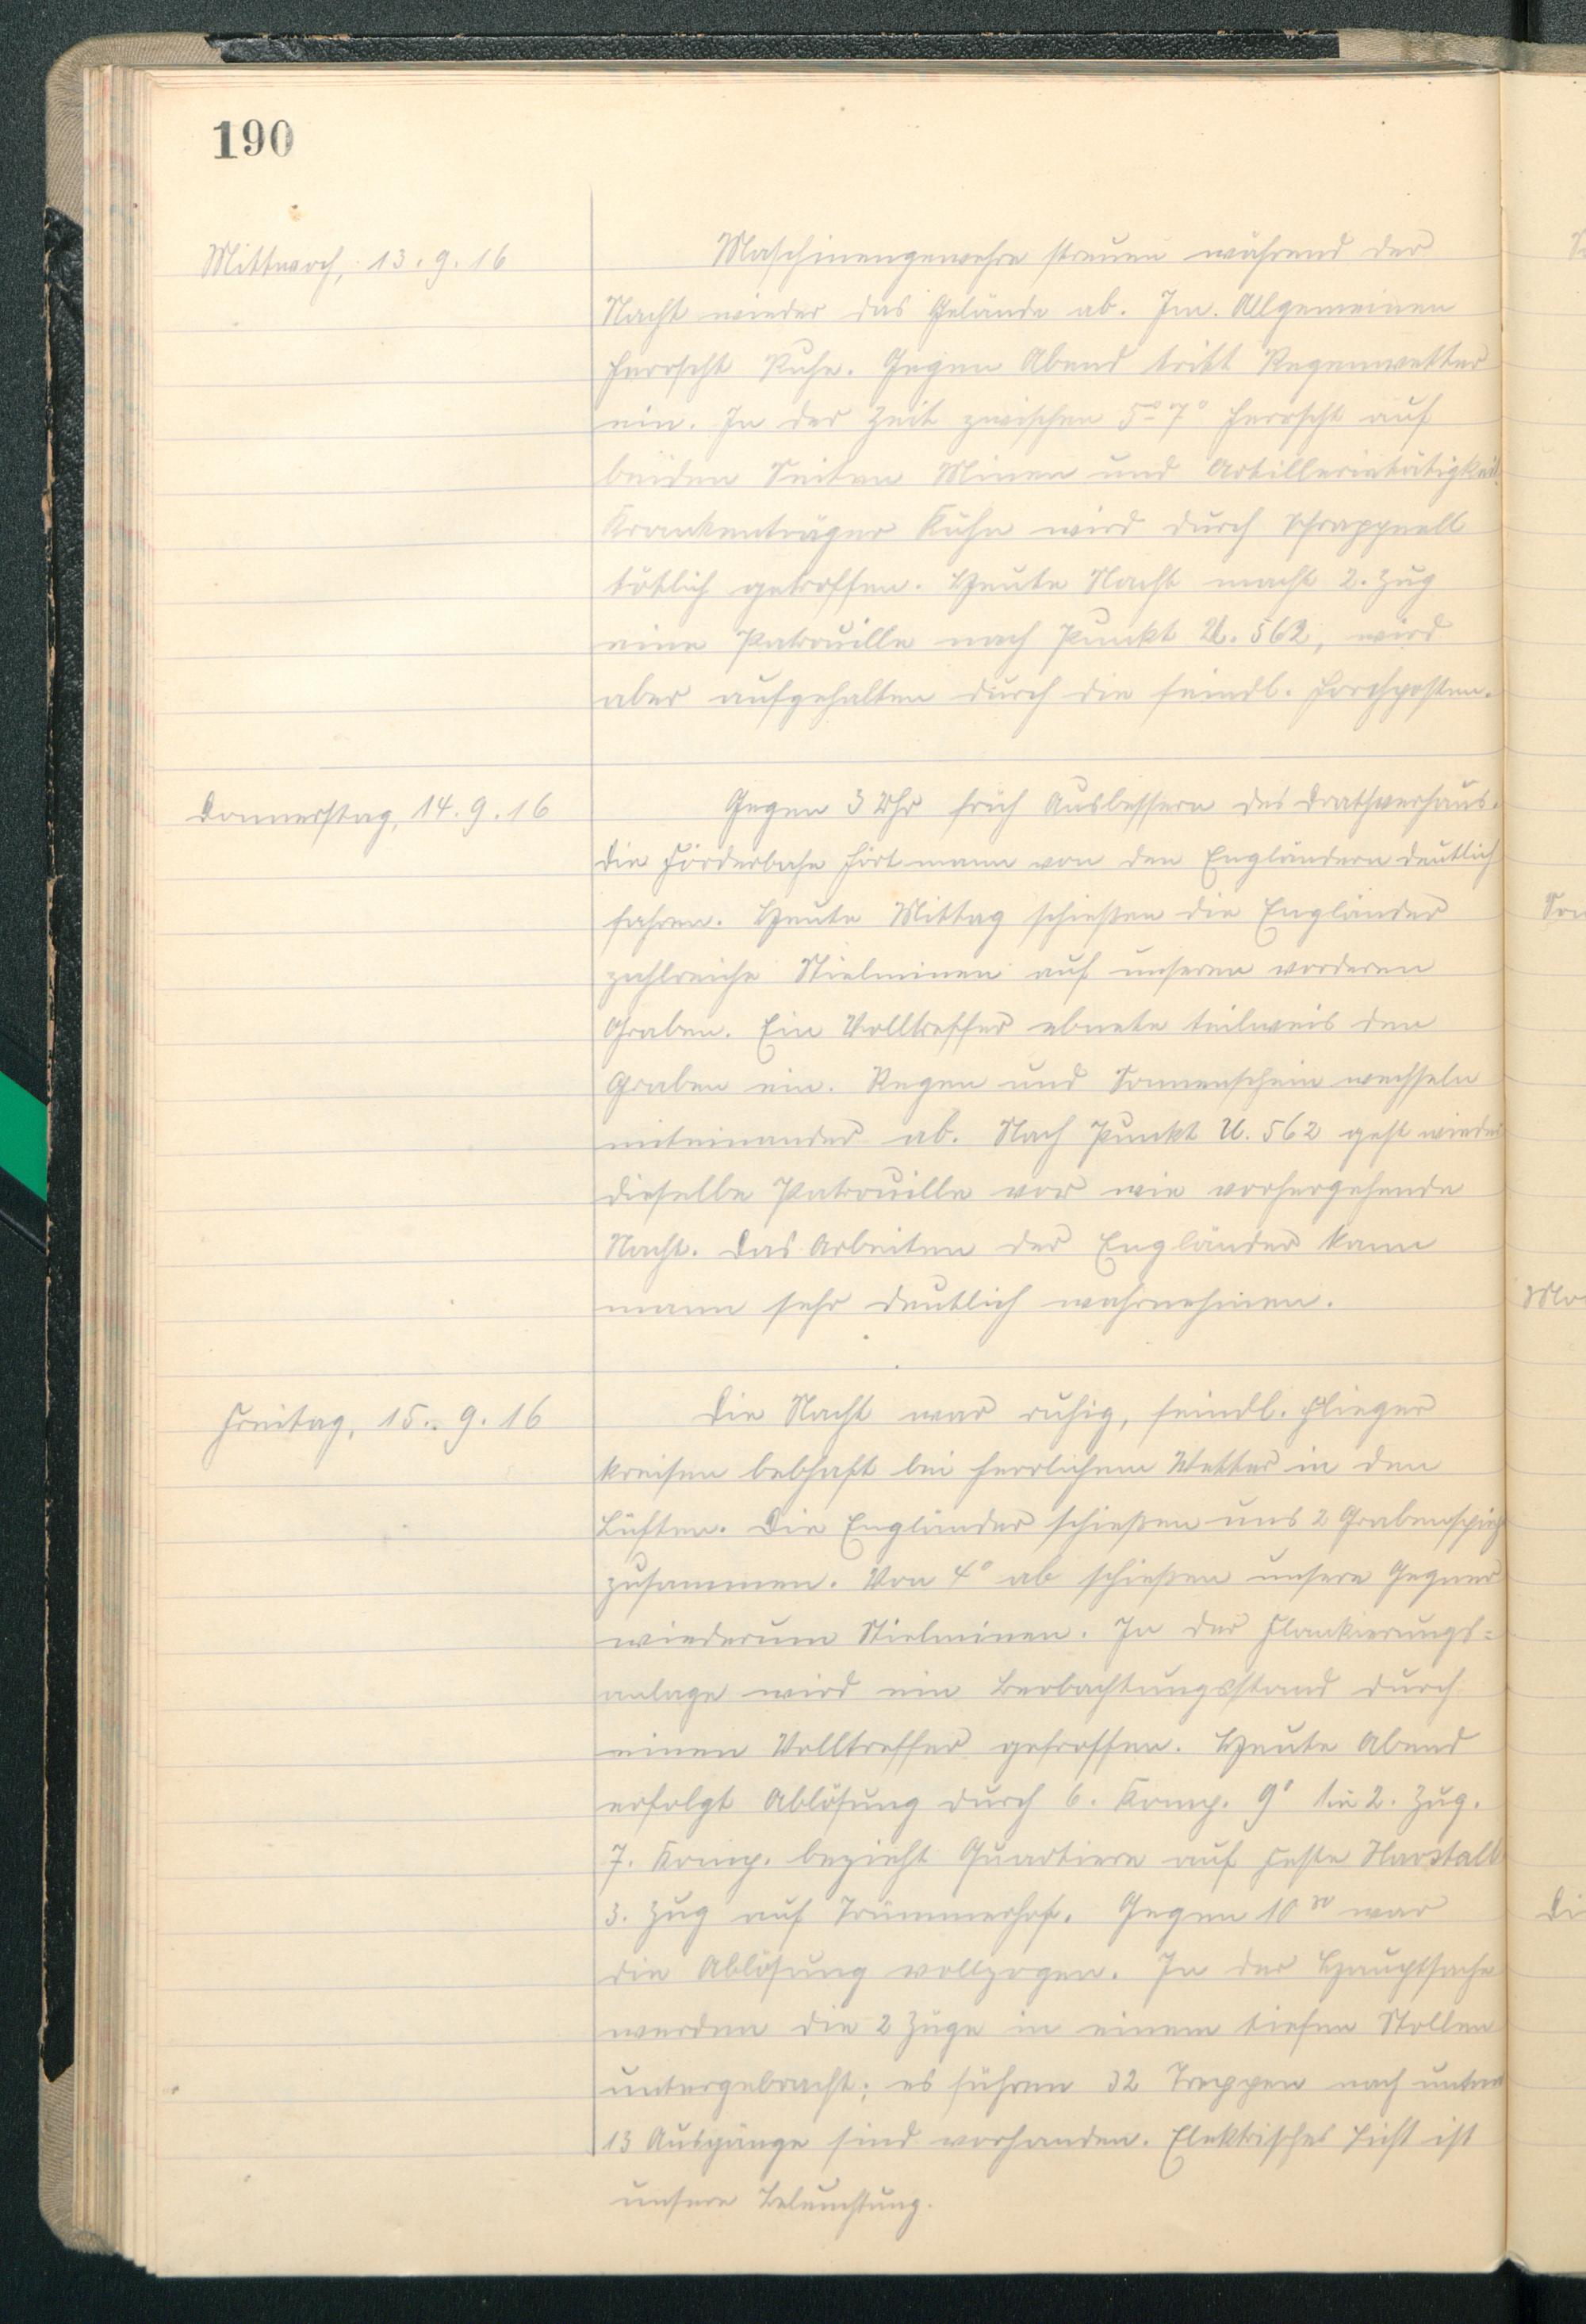 190
Mittwoch, 13.9.16
Maschinengewehre streuen während der
Nacht wieder das Gelände ab. Im. Allgemeinen
herrscht Ruhe. Gegen Abend tritt Regenwetter
ein. In der Zeit zwischen 5°-7° herrscht auf
beiden Seiten Minen und Artillerietätigkeit.
Krankenträger Kühn wird durch Schrappnell
tötlich getroffen. Heute Nacht macht 2. Zug
eine Patrouille nach Punkt U. 562, wird
aber aufgehalten durch die feindl. Horchposten.
Donnerstag, 14.9.16
Gegen 3 Uhr früh Ausbessern des Drathverhaus.
Die Förderbahn hört mann von den Engländern deutlich
fahren. Heute Mittag schießen die Engländer
zahlreiche Stielminen auf unseren vorderen
Graben. Ein Volltreffer ebnete teilweis den
Graben ein. Regen und Sonnenschein wechseln
miteinander ab. Nach Punkt U. 562 geht wieder
dieselbe Patrouille vor wie vorhergehende
Nacht. Das Arbeiten der Engländer kann
mann sehr deutlich wahrnehmen.
Freitag, 15.9.16
Die Nacht war ruhig, feindl. Flieger
kreisen lebhaft bei herrlichem Wetter in den
Lüften. Die Engländer schießen uns 2 Grabenspiegel
zusammen. Von 4° ab schießen unsere Gegner
wiederum Stielminen. In der Flankierungs=
anlage wird ein Beobachtungsstand durch
einen Volltreffer getroffen. Heute Abend
erfolgt Ablösung durch 6. Komp. 9° 1 u 2. Zug.
7. Komp. bezieht Quartiere auf Feste
3. Zug auf Trümmerhof. Gegen 10³⁰ war
die Ablösung vollzogen. In der Hauptsache
werden die 2 Züge in einem tiefen Stollen
untergebracht; es führen 32 Treppen nach unten
13 Ausgänge sind vorhanden. Elektrisches Licht ist
unsere Beleuchtung.